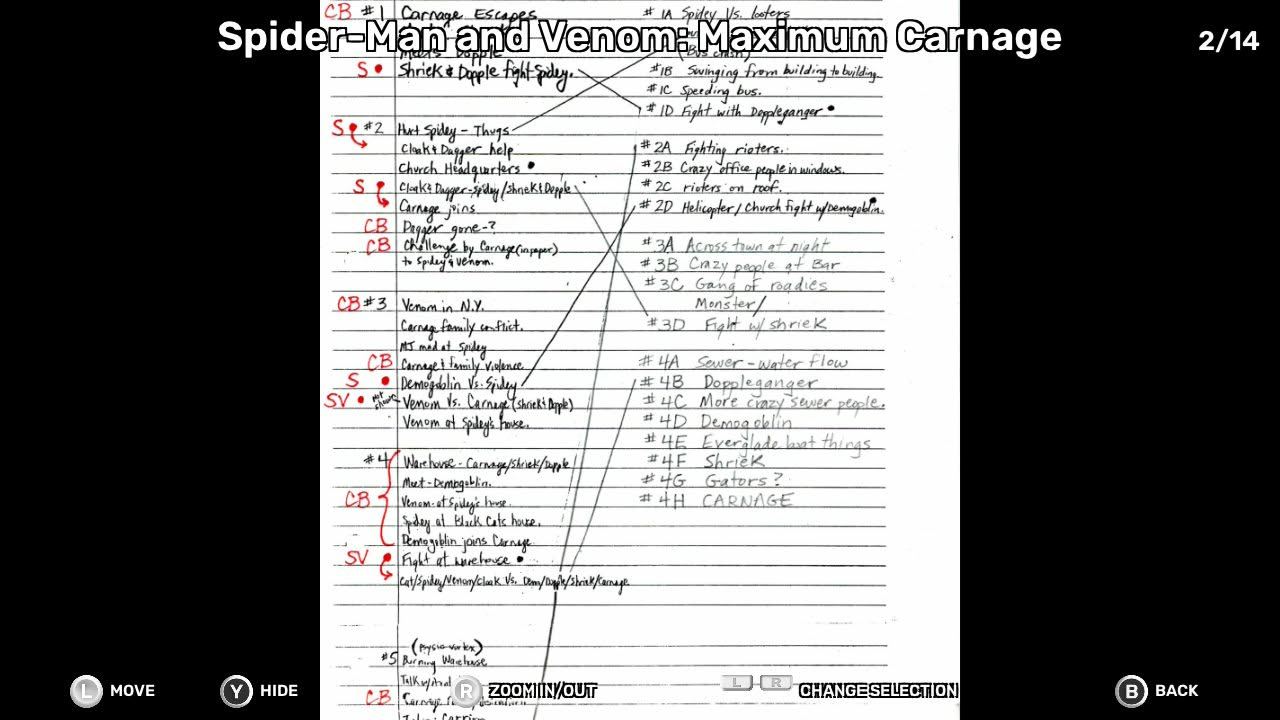 CB #1 Carnage Escapes
Spider-Man and Venom: Maximum Carnage
2/14
Meets Dopple
S • Shriek & Dopple fight Spidey.
S #2 Hurt Spidey - Thugs
Cloak & Dagger help
Church Headquarters •
S Cloak & Dagger-Spidey/Shriek & Dopple
Carnage joins
CB Dagger gone-?
CB Challenge by Carnage (in paper)
to Spidey & Venom.
CB #3 Venom in N.Y.
Carnage family conflict.
MJ mad at Spidey
CB Carnage & family violence.
S • Demogoblin Vs. Spidey
SV • not shown Venom Vs. Carnage (Shriek & Dopple)
Venom at Spidey's house.
#4 Warehouse - Carnage/Shriek/Dopple
Meet-Demogoblin.
CB Venom-at Spidey's house.
Spidey at Black Cats house.
Demogoblin joins Carnage
SV Fight at warehouse •
Cat/Spidey/Venom/Cloak Vs. Dem/Dopple/Shriek/Carnage.
(psycic vortex)
#5 Burning Warehouse
CB
#1A Spidey Vs. looters
(Bus crash)
#1B Swinging from building to building.
#1C Speeding bus.
#1D Fight with Doppleganger •
#2A Fighting rioters.
#2B Crazy office people in windows.
#2C rioters on roof.
#2D Helicopter/Church fight w/Demogoblin.
#3A Across town at night
#3B Crazy people at Bar
#3C Gang of roadies
Monster/
#3D Fight w/ shriek
#4A Sewer-water flow
#4B Doppleganger
#4C More crazy sewer people.
#4D Demogoblin
#4E Everglade boat things
#4F Shriek
#4G Gators?
#4H CARNAGE
L MOVE
Y HIDE
R ZOOM IN/OUT
L R CHANGE SELECTION
B BACK